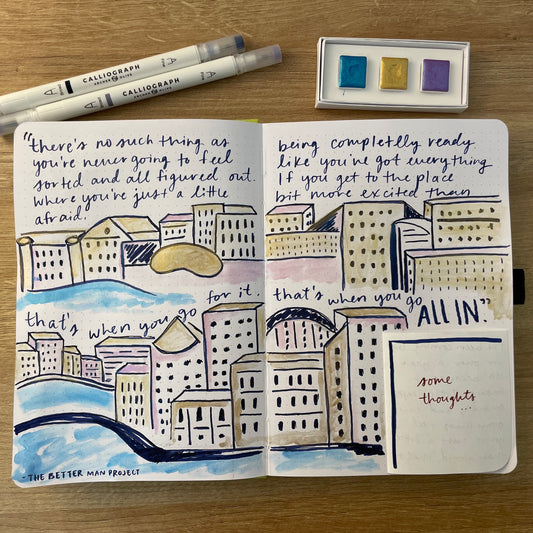 CALLIOGRAPH
ARCHER & OLIVE
CALLIOGRAPH
ARCHER & OLIVE
"there's no such thing as being completely ready
you're never going to feel like you've got everything
sorted and all figured out. If you get to the place
where you're just a little bit more excited than
afraid.
that's when you go for it. that's when you go ALL IN."
some
thoughts
...
- THE BETTER MAN PROJECT